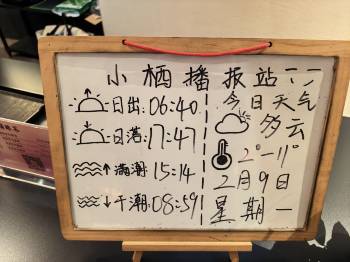 小栖播报站
日出:06:40
日落:17:47
满潮:15:14
干潮:08:59
今日天气
多云
2°-11°
2月9日
星期一